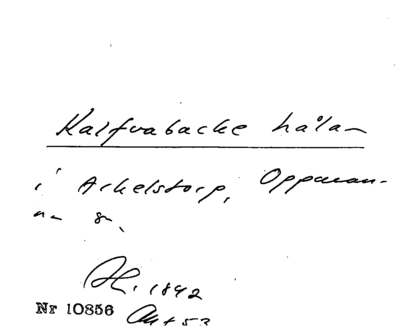 Kalfvabacke håla
i Arkelstorp, Oppman-
na sn.
1892
Nr 10856